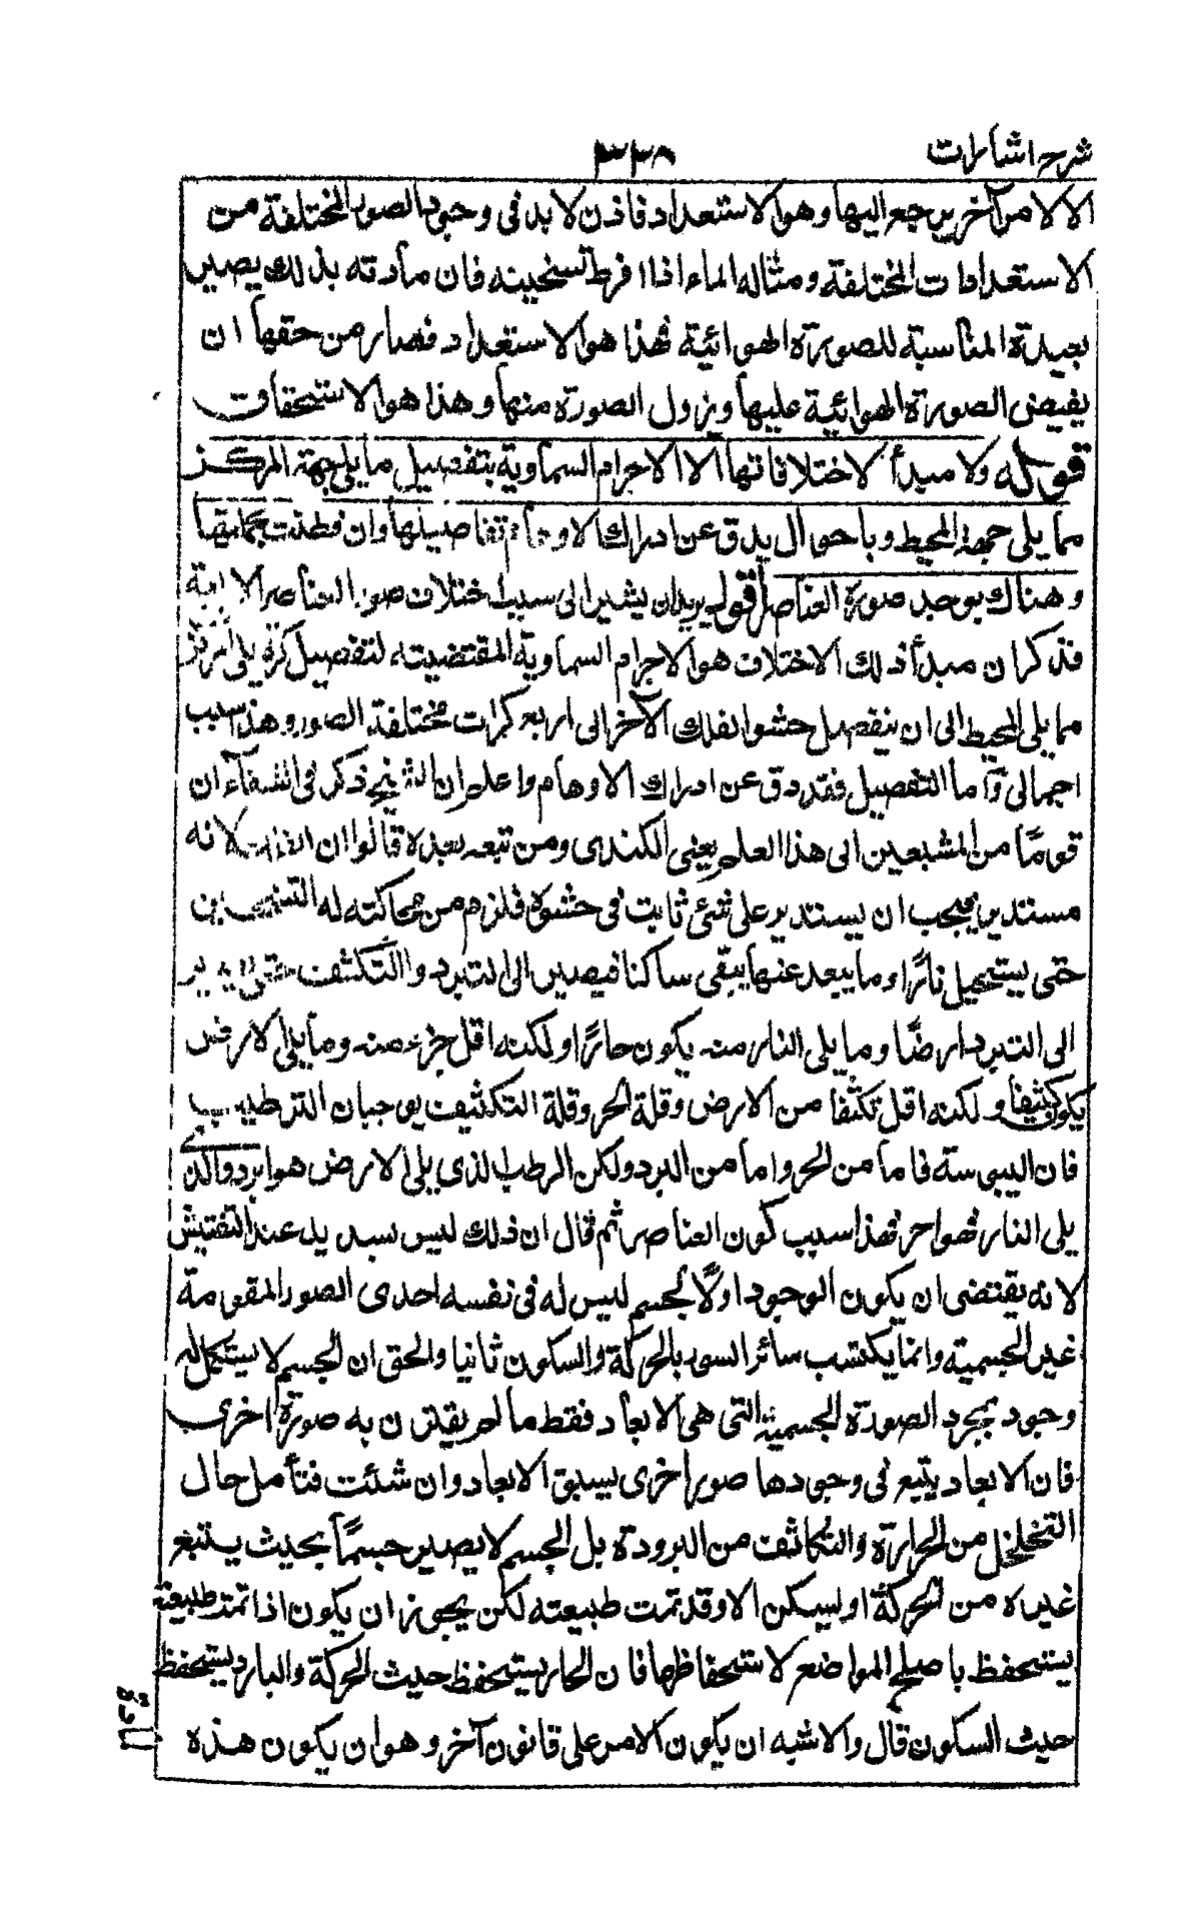 شرح اشارات
٣٣٨
الا لامر آخر يرجع اليها وهو الاستعداد فاذن لا بد فى وجود الصور المختلفة من
الاستعدادات المختلفة ومثاله الماء اذا افرط تسخينه فان مادته بذلك يصير
بعيدة المناسبة للصورة الهوائية فهذا هو الاستعداد فصار من حقها ان
يفيض الصورة الهوائية عليها ويزول الصورة منها وهذا هو الاستحقاق
قوله ولا مبدأ لاختلافاتها الا الاجرام السماوية بتفصيل ما يلى جهة المركز
مما يلى جهة المحيط وباحوال يدق عن ادراك الاوهام تفاصيلها وان فطنت بجملتها
وهناك يوجد صورة العناصر اقول يريد ان يشير الى سبب اختلاف صور العناصر الاربعة
فذكر ان مبدأ ذلك الاختلاف هو الاجرام السماوية المقتضية لتفصيل كرة يلى المركز
مما يلى المحيط الى ان ينفصل حشو الفلك الآخر الى اربع كرات مختلفة الصور وهذا سبب
اجمالى وأما التفصيل فقد دق عن ادراك الاوهام واعلم ان الشيخ ذكر فى الشفاء ان
قومًا من المشبعين الى هذا العلم يعنى الكندى ومن تبعه بعده قالوا ان الفلك لانه
مستدير فيجب ان يستدير على شئ ثابت فى حشوه فلزم من محاكته له التسخين
حتى يستحيل نارًا وما يبعد عنها يبقى ساكنا فيصير الى التبرد والتكثف حتى يصير
الى التبرد ارضًا وما يلى النار منه يكون حارًا ولكنه اقل حرا منه وما يلى الارض
يكون كثيفا ولكنه اقل تكثفا من الارض وقلة الحر وقلة التكثيف يوجبان الترطيب
فان اليبوسة فاما من الحر واما من البرد ولكن الرطب الذى يلى الارض هو ابرد والذى
يلى النار فهو احر فهذا سبب كون العناصر ثم قال ان ذلك ليس بسديد عند التفتيش
لانه يقتضى ان يكون الوجود اولًا لجسم ليس له فى نفسه احدى الصور المقومة
غير الجسمية وانما يكتسب سائر الصور بالحركة والسكون ثانيا والحق ان الجسم لا يستكمل له
وجود بمجرد الصورة الجسمية التى هى الابعاد فقط ما لم يقترن به صورة اخرى
فان الابعاد يتبع فى وجودها صورا اخرى يسبق الابعاد وان شئت فتأمل حال
التخلخل من الحرارة والتكاثف من البرودة بل الجسم لا يصير جسمًا بحيث يتبع
غيره من الحركة او ليسكن الا وقد تمت طبيعته لكن يجوز ان يكون اذا تمت طبيعته
يستحفظ باصلح المواضع لاستحفاظها فان الحار يستحفظ حيث الحركة والبارد يستحفظ
حيث السكون قال والاشبه ان يكون الامر على قانون آخر وهو ان يكون هذه
المادة